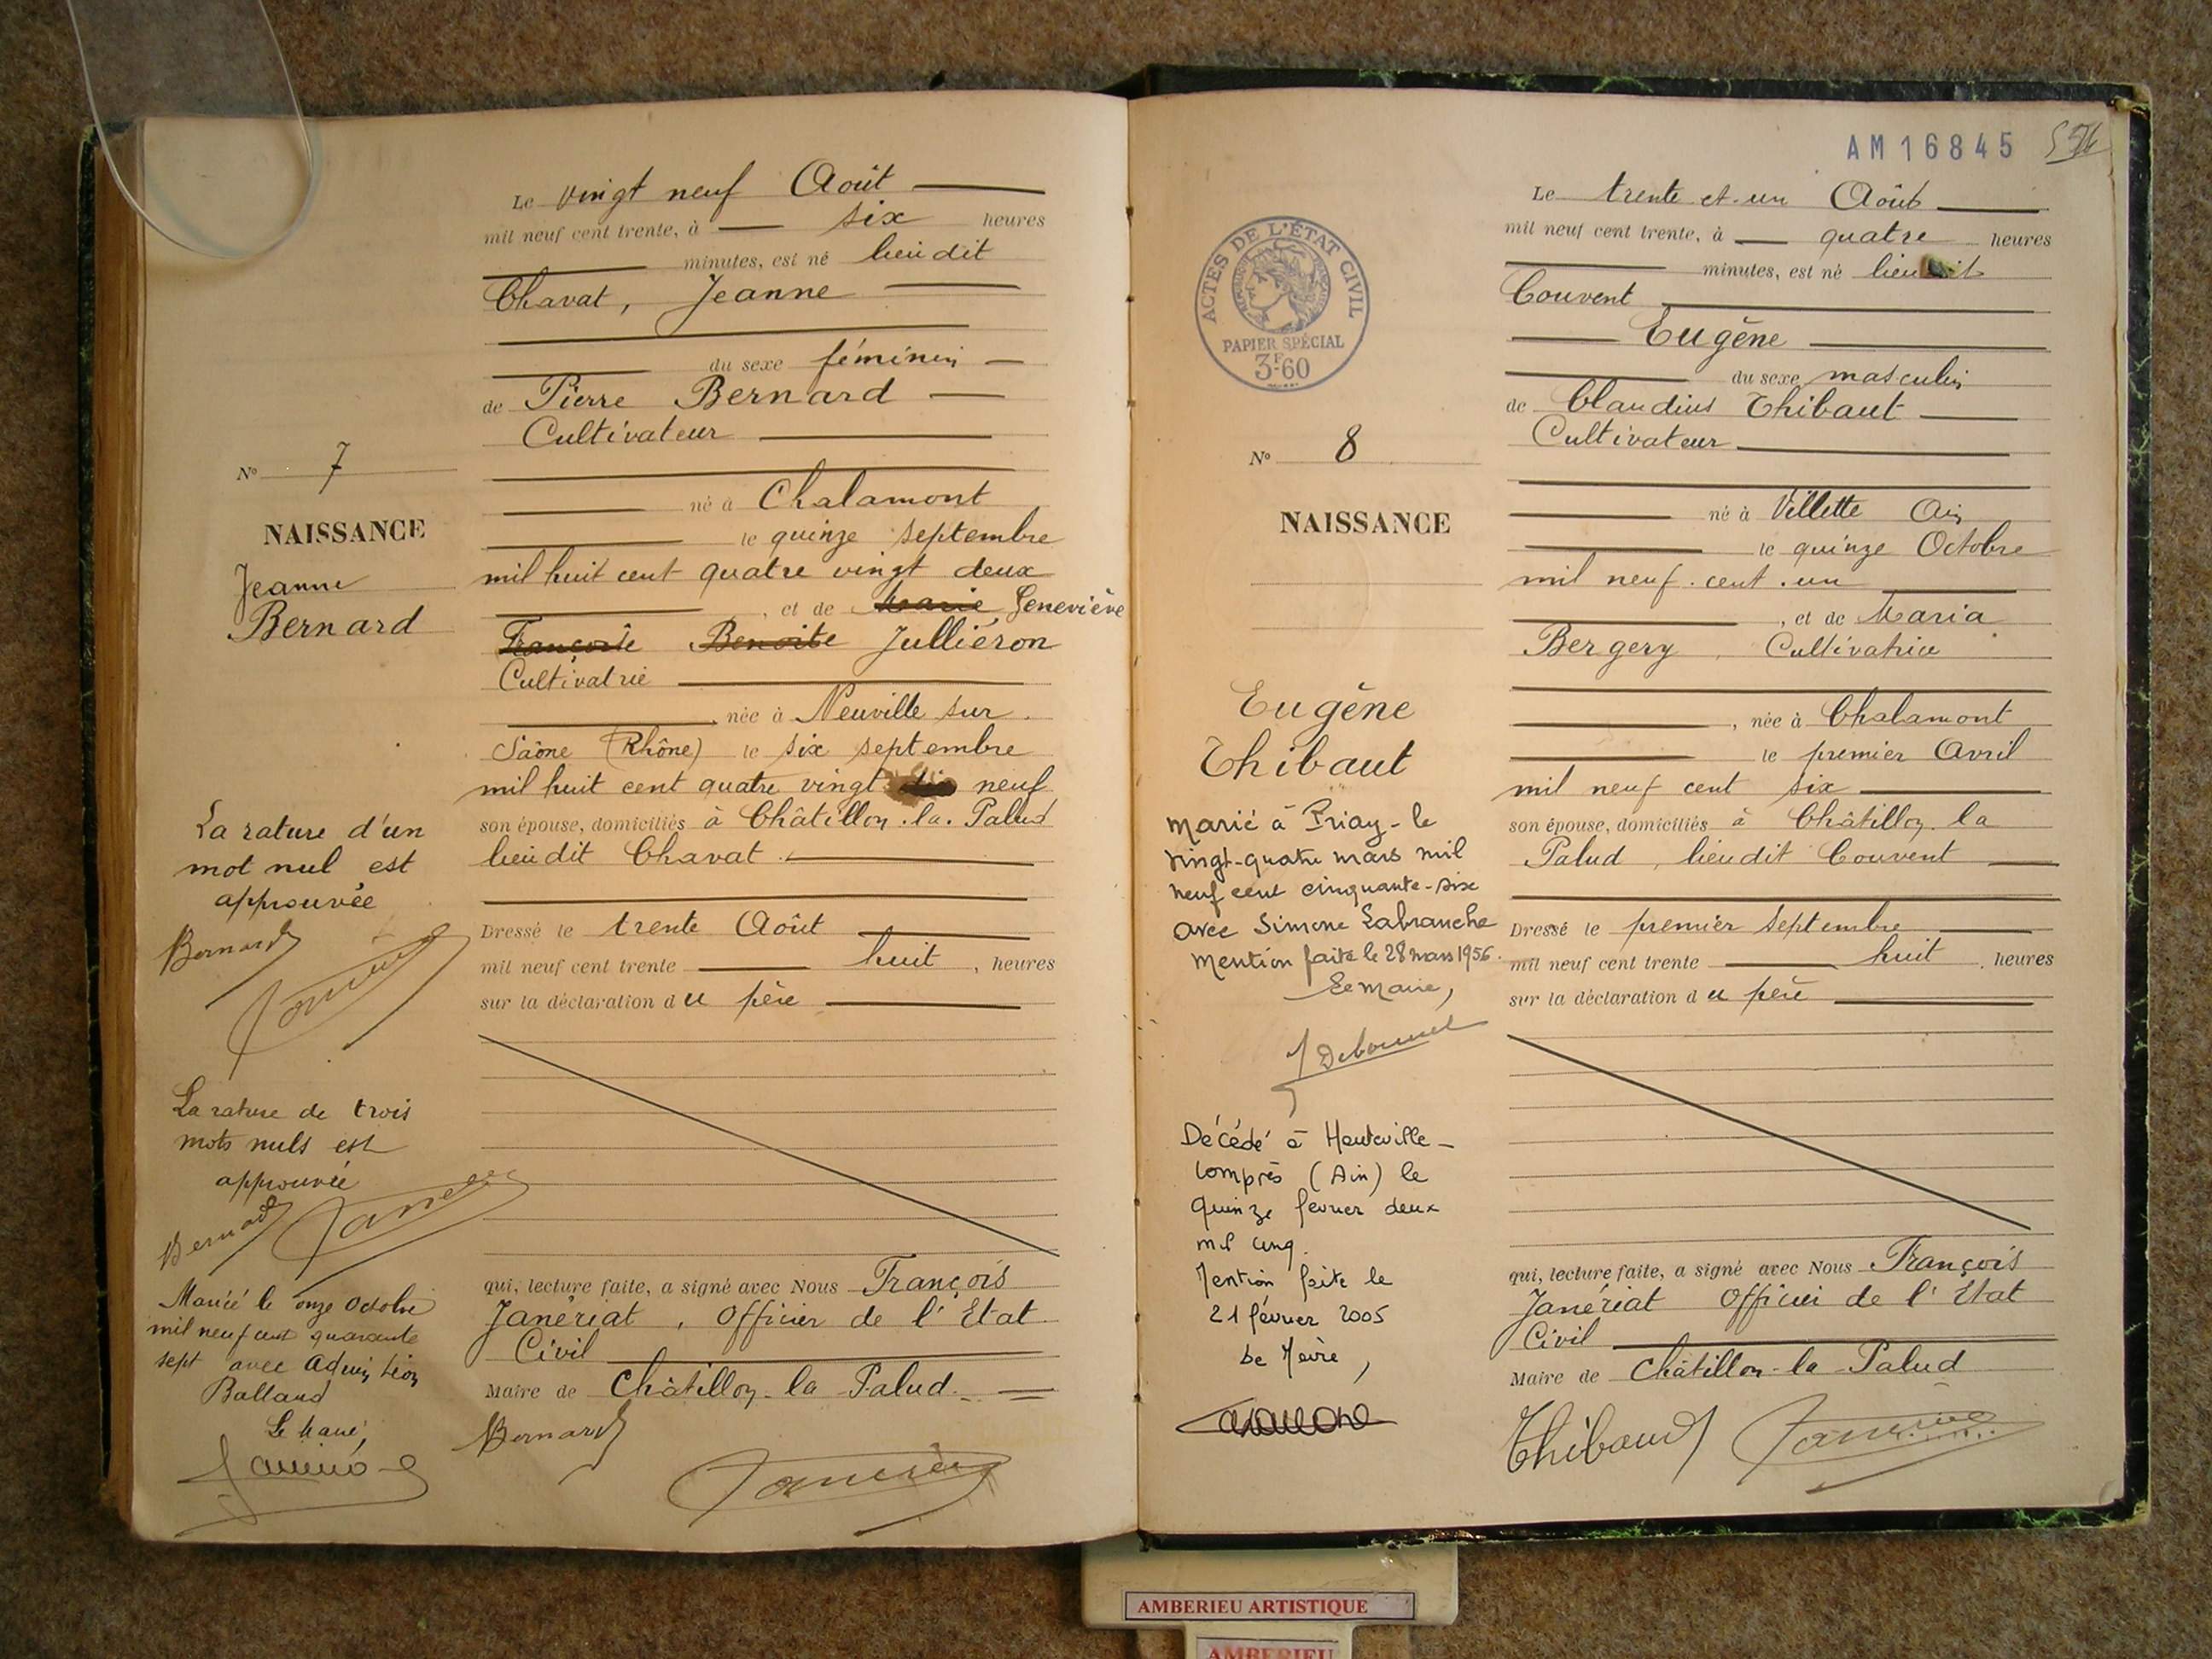 Le vingt neuf Août
mil neuf cent trente, à six heures
minutes, est né lieu dit
Chavat, Jeanne
du sexe féminin
de Pierre Bernard
Cultivateur
né à Chalamont
le quinze septembre
mil huit cent quatre vingt deux
, et de Marie Geneviève
Françoise Benoite Julliéron
Cultivatrie
, née à Neuville sur
Saône (Rhône) le six septembre
mil huit cent quatre vingt dix neuf
son épouse, domiciliés à Châtillon-la-Palud
lieu dit Chavat
Dressé le trente Août
mil neuf cent trente huit, heures
sur la déclaration du père
qui, lecture faite, a signé avec Nous François
Janériat, Officier de l'Etat
Civil
Maire de Châtillon-la-Palud
Bernard
N° 7
NAISSANCE
Jeanne
Bernard
La rature d'un
mot nul est
approuvée
Bernard
La rature de trois
mots nuls est
approuvée
Bernard
Mariée le onze Octobre
mil neuf cent quarante
sept avec
Balland
Le Maire,
AM16845
ACTES DE L'ÉTAT CIVIL
PAPIER SPÉCIAL
3F60
N° 8
NAISSANCE
Eugène
Thibaut
Marié à Priay - le
vingt-quatre mars mil
neuf cent cinquante-six
avec Simone Labranche
Mention faite le 28 mars 1956.
Le Maire,
Décédé à Hauteville-
Lompnès (Ain) le
quinze février deux
mil cinq.
Mention faite le
21 février 2005
Le Maire,
Le trente et un Août
mil neuf cent trente, à quatre heures
minutes, est né lieu dit
Couvent
Eugène
du sexe masculin
de Claudius Thibaut
Cultivateur
né à Villette Ain
le quinze Octobre
mil neuf cent un
, et de Maria
Bergery, Cultivatrice
, née à Chalamont
le premier Avril
mil neuf cent six
son épouse, domiciliés à Châtillon la
Palud, lieu dit Couvent
Dressé le premier Septembre
mil neuf cent trente huit, heures
sur la déclaration du père
qui, lecture faite, a signé avec Nous François
Janériat Officier de l'Etat
Civil
Maire de Châtillon-la-Palud
Thibaud
AMBERIEU ARTISTIQUE
AMBERIEU